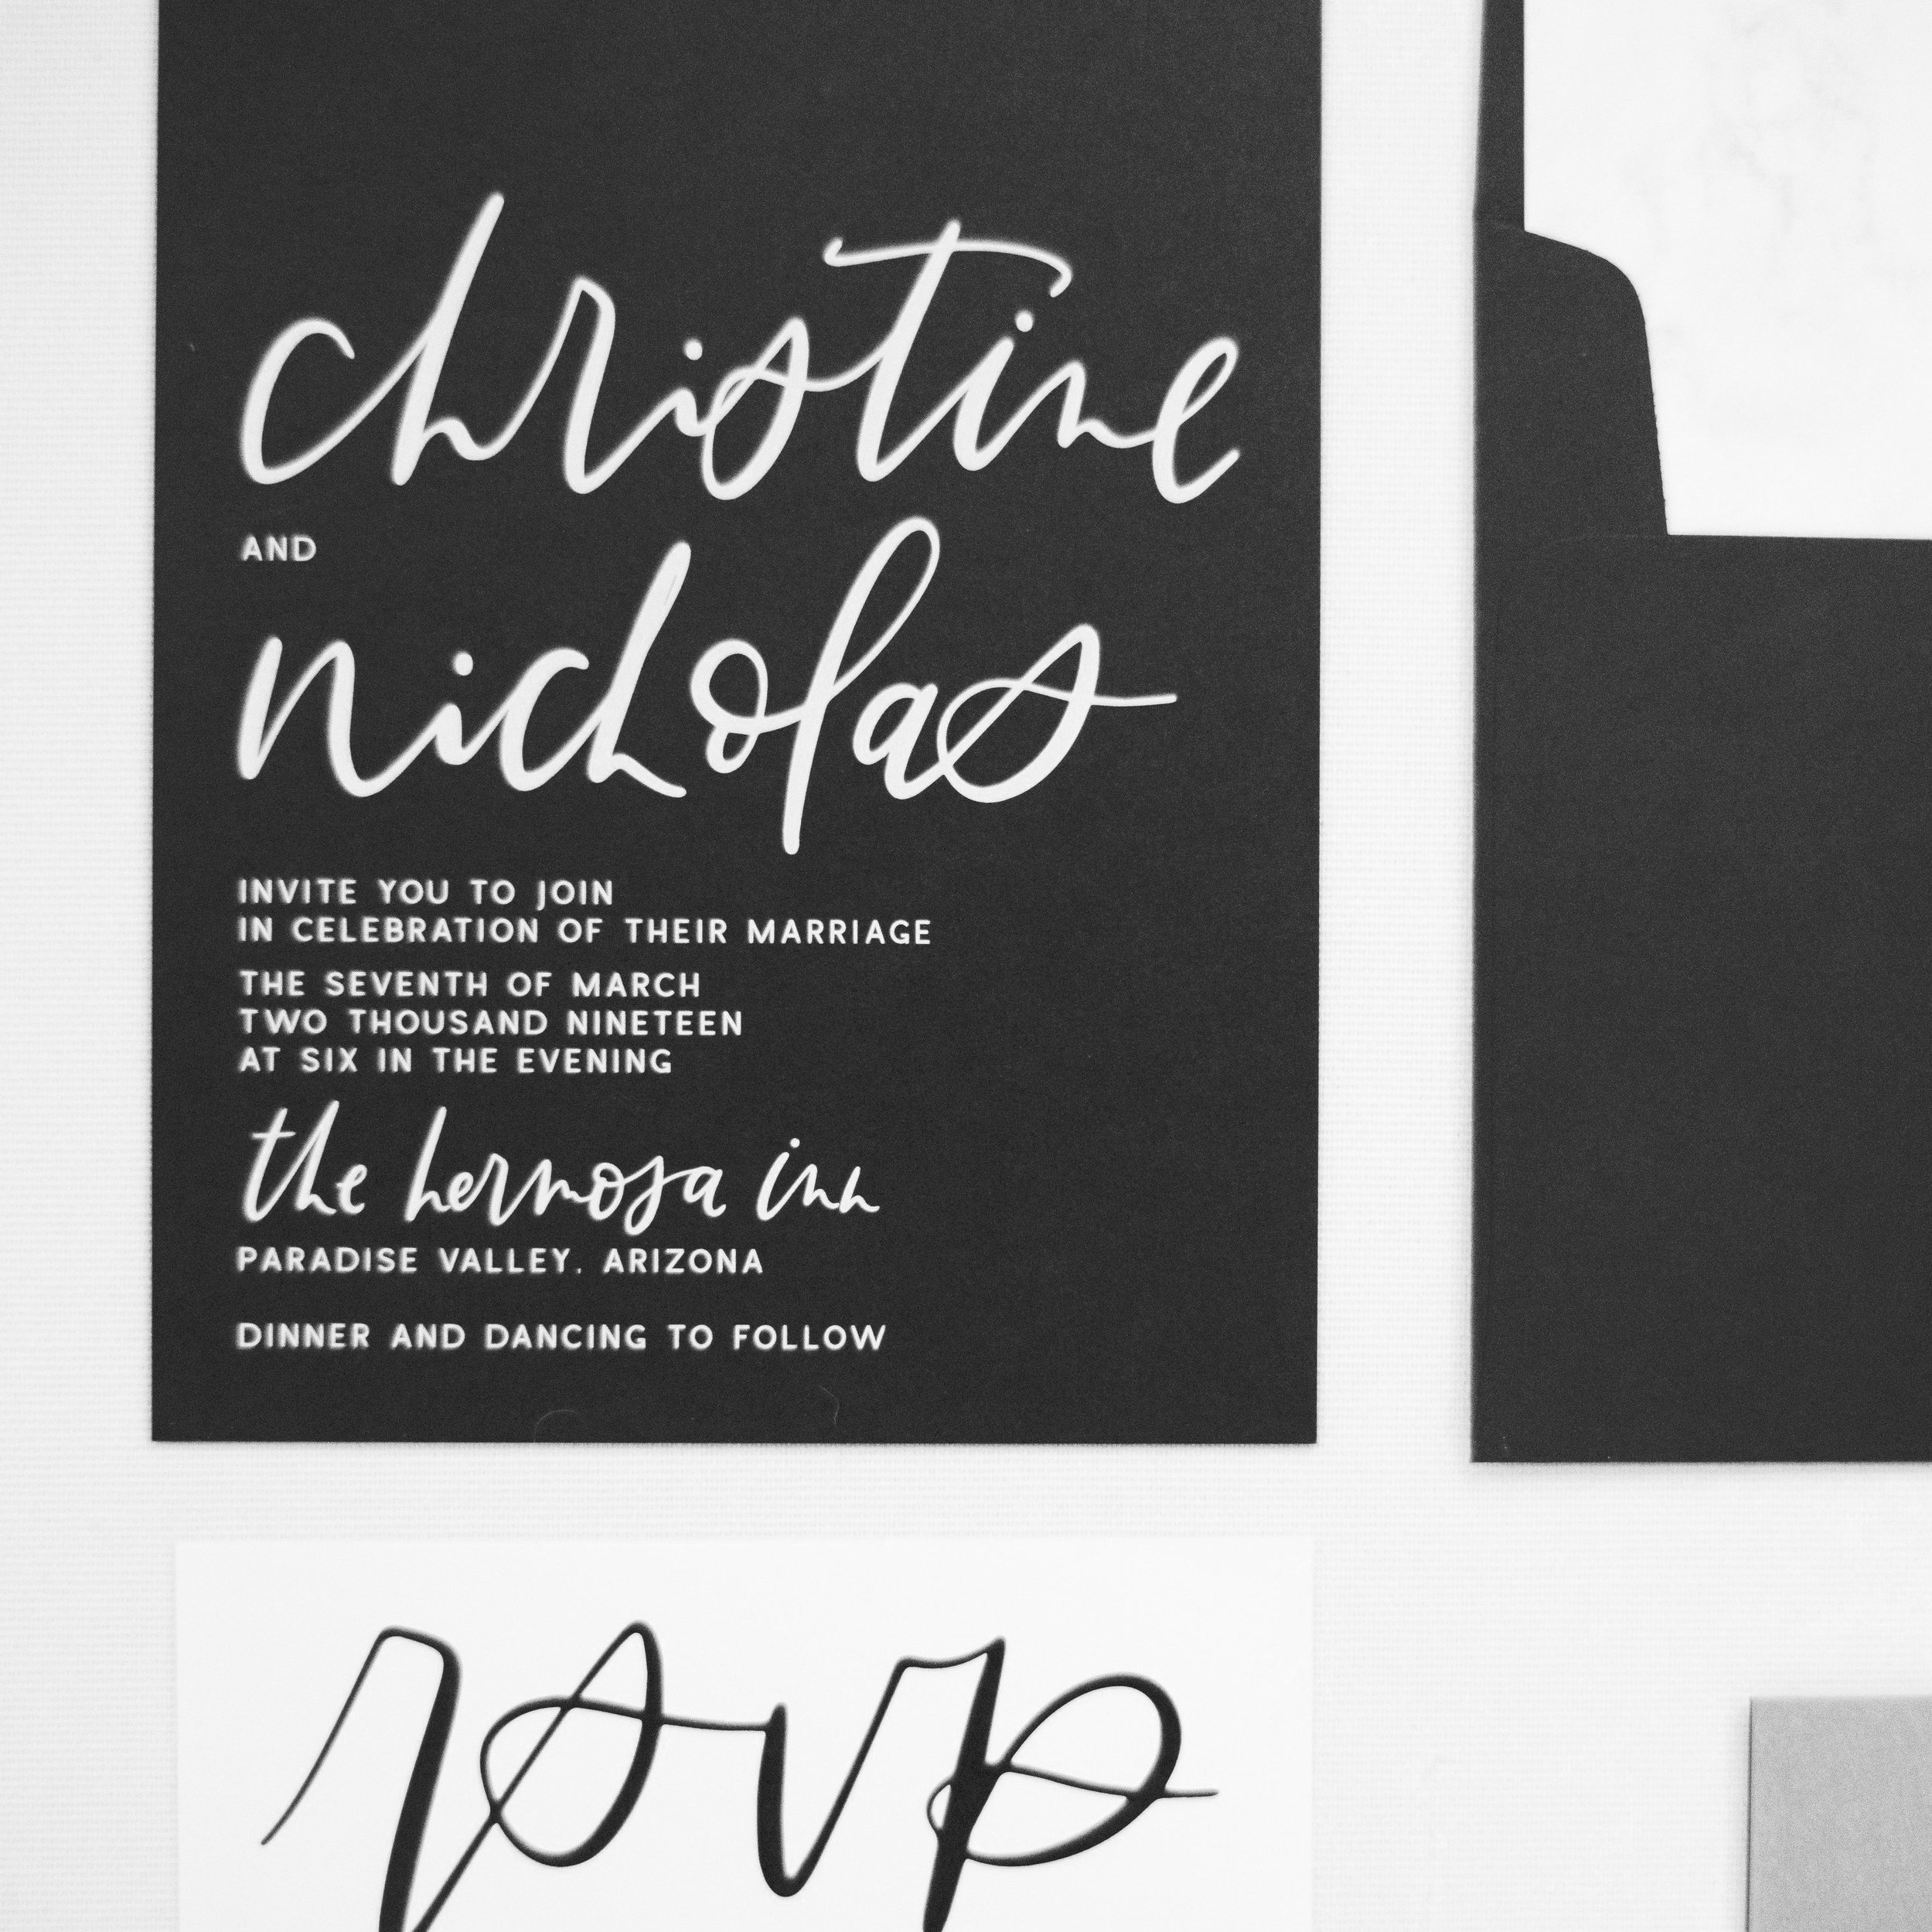 christine
AND
nicholas
INVITE YOU TO JOIN
IN CELEBRATION OF THEIR MARRIAGE
THE SEVENTH OF MARCH
TWO THOUSAND NINETEEN
AT SIX IN THE EVENING
the hermosa inn
PARADISE VALLEY, ARIZONA
DINNER AND DANCING TO FOLLOW
rsvp